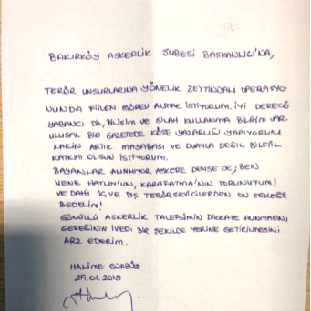 BAKIRKÖY ASKERLİK ŞUBESİ BAŞKANLIĞI'NA,
TERÖR UNSURLARINA YÖNELİK ZEYTİNDALI OPERASYO
NUNDA FİİLEN GÖREV ALMAK İSTİYORUM. İYİ DERECE
YABANCI DİL, NİŞAN VE SİLAH KULLANMA BİLGİM VAR.
ULUSAL BİR GAZETEDE KÖŞE YAZARLIĞI YAPIYORUM
LAKİN ARTIK MAŞABAŞI VE DUAYLA DEĞİL BİLFİİL
KATKIM OLSUN İSTİYORUM.
BAYANLAR ALINMIYOR ASKERE DENSE DE, BEN
NENE HATUN'UN, KARAFATMA'NIN TORUNUYUM
VE DAHİ İÇ VE DIŞ TERÖRSEVİCİLERDEN ON ERKEĞE
BEDELİM!
GÖNÜLLÜ ASKERLİK TALEBİMİN DİKKATE ALINMASINI
GEREĞİNİN İVEDİ BİR ŞEKİLDE YERİNE GETİRİLMESİNİ
ARZ EDERİM.
HALİME GÜRBÜZ